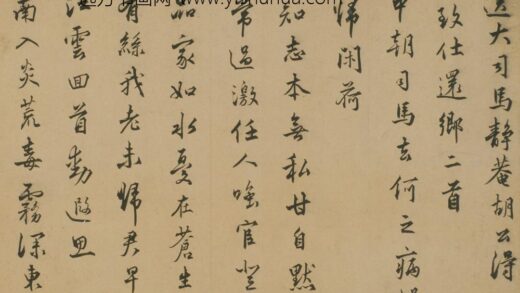 送大司馬靜菴胡公得
致仕還鄉二首
中朝司馬去何之病
歸閑荷
知志本無私甘自默
常過激任人嗤官登
品家如水憂在蒼生
有絲我老未歸君早
江雲回首動遐思
南入炎荒毒霧深東